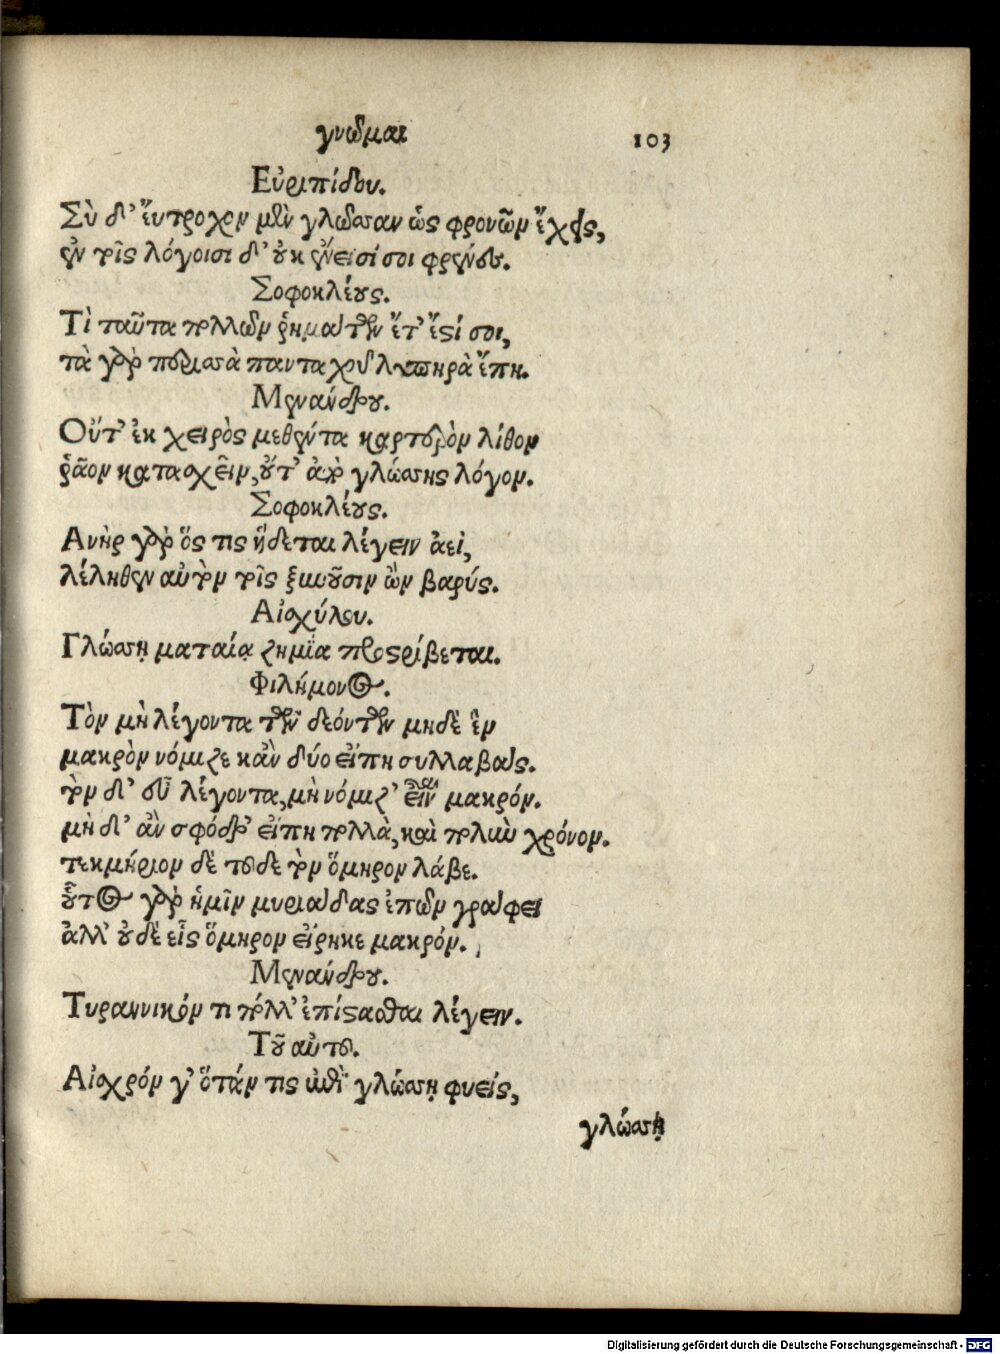 γνῶμαι 103
Εὐριπίδου.
Σὺ δ' ἔυτροχον μὲν γλῶσσαν ὡς φρονῶν ἔχεις,
ἐν τοῖς λόγοισι δ' οὐκ ἔνεισί σοι φρένες.
Σοφοκλέους.
Τὶ ταῦτα πολλῶν ῥημάτων ἔτ' ἔστί σοι,
τὰ γὰρ περισσὰ πανταχοῦ λυπηρὰ ἔπη.
Μενάνδρου.
Οὔτ' ἐκ χειρὸς μεθέντα καρτερὸν λίθον
ῥᾶον κατασχεῖν, οὔτ' ἀπὸ γλώσσης λόγον.
Σοφοκλέους.
Ανὴρ γὰρ ὅς τις ἥδεται λέγειν ἀεὶ,
λέληθεν αὐτὸν τοῖς ξυνοῦσιν ὢν βαρύς.
Αἰσχύλου.
Γλώσσῃ ματαίᾳ ζημία προστρίβεται.
Φιλήμονος.
Τὸν μὴ λέγοντα τῶν δεόντων μηδὲ ἓν
μακρὸν νόμιζε κἂν δύο εἴπῃ συλλαβάς.
τὸν δ' εὖ λέγοντα, μὴ νόμιζ' εἶναι μακρόν.
μὴ δ' ἂν σφόδρ' εἴπῃ πολλὰ, καὶ πολὺν χρόνον.
τεκμήριον δὲ τοῦδε τὸν ὅμηρον λάβε.
οὗτος γὰρ ἡμῖν μυριάδας ἐπῶν γράφει
ἀλλ' οὐδὲ εἷς ὅμηρον εἴρηκε μακρόν.
Μενάνδρου.
Τυραννικόν τι πόλλ' ἐπίστασθαι λέγειν.
Τοῦ αὐτοῦ.
Αἰσχρόν γ' ὅτάν τις ἐπὶ γλώσσῃ φυεὶς,
γλώσσῃ
Digitalisierung gefördert durch die Deutsche Forschungsgemeinschaft - DFG